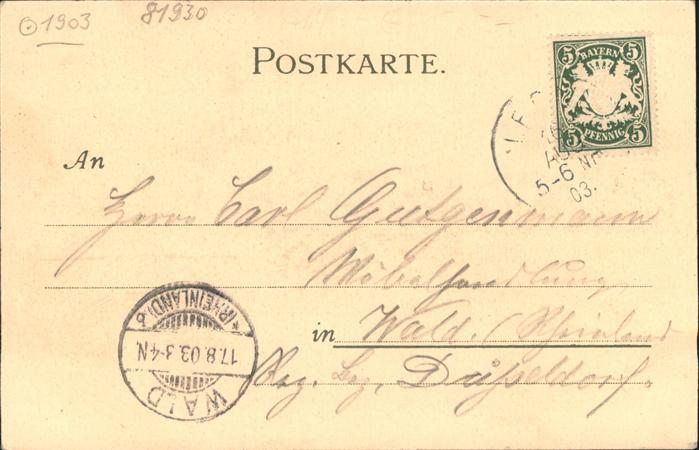 1903
81930
POSTKARTE.
5 5
BAYERN
5 PFENNIG 5
AUG
5-6 NM
03.
An
Herrn Carl Gutgenmann
Möbelhandlung
in Wald. (Rheinland
Bez. Düsseldorf.
*(RHEINLAND) b
17.8.03.3-4N.
WALD